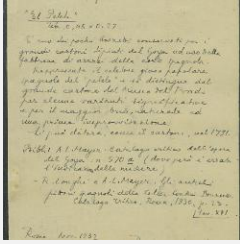 "El Pelele"
Tela 0,35 x 0,23
È uno dei pochi bozzetti conservati per i
grandi cartoni dipinti dal Goya ad uso della
fabbrica di arazzi della corte spagnola.
Rappresenta il celebre gioco popolare
spagnolo del "pelele" e si distingue dal
grande cartone del Museo del Prado
per alcune varianti semplificative
e per il maggior brio, naturale ad
una prima improvvisazione.
Si può datare, come il cartone, nel 1791.
A. L. Mayer
dell'opera
del Goya
n. 710a (dove però è errata
l'indicazione delle misure)
R. Longhi e A. L. Mayer - Gli antichi
pittori spagnoli della Coll. Contini Bonacossi
Catalogo critico, Roma, 1930, p. 23.
Roma